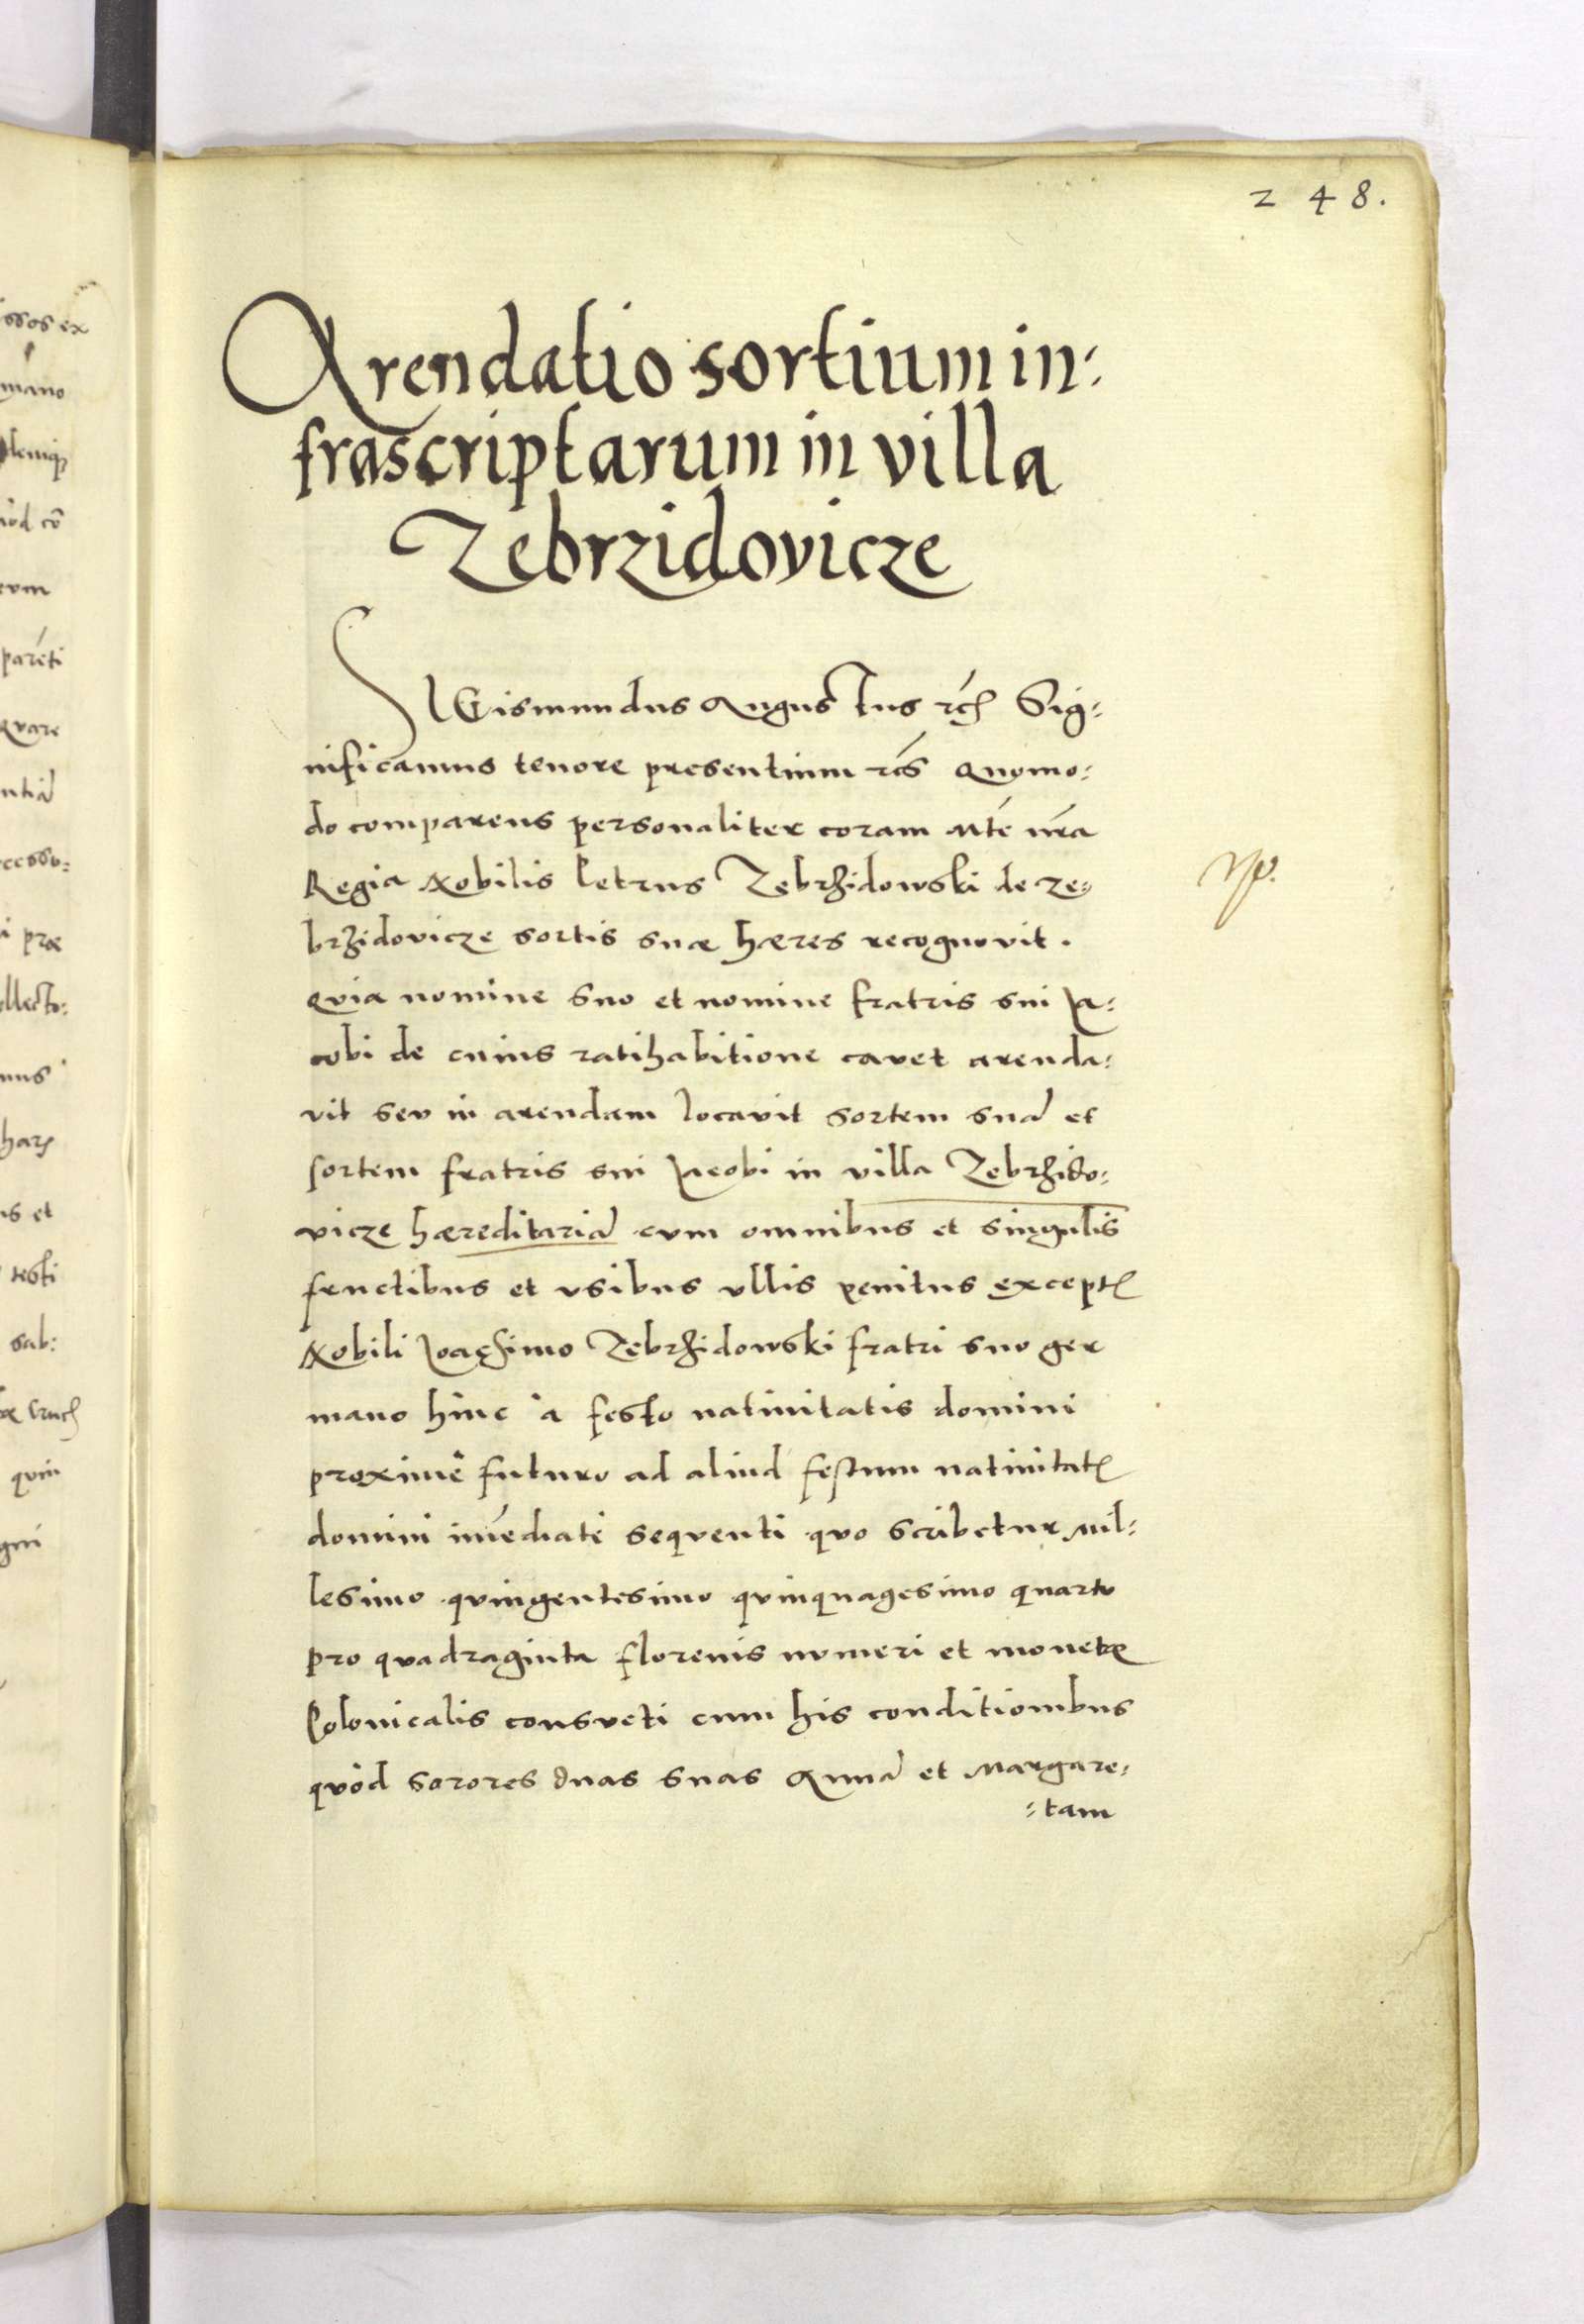 248.
Arendatio sortium in:
frascriptarum in villa
Zebrzidovicze
SIGismundus Augustus rc̃ Sig:
nificamus tenore presentium rc̃s Quomo:
do comparens personaliter coram Mte nr̃a
Regia Nobilis Petrus Zebrzidowski de Ze:
brzidovicze sortis suæ hæres recognovit.
Quia nomine suo et nomine fratris sui Ja:
cobi de cuius ratihabitione cavet arenda:
vit seu in arendam locavit sortem suã et
sortem fratris sui Jacobi in villa Zebrzido:
vicze hæreditariã cum omnibus et singulis
fructibus et usibus ullis penitus except
Nobili Joachimo Zebrzidowski fratri suo ger
mano hinc à festo nativitatis domini
proximè futuro ad aliud festum nativitat
domini im̃ediatè sequenti quo scribetur Mil:
lesimo quingentesimo quinquagesimo quarto
pro quadraginta florenis numeri et monetæ
Polonicalis consueti cum his conditionibus
quòd sorores duas suas Annã et Margare:
:tam
ssos ex
mano
rum
parẽti
Quare
ntiã
cessu:
i præ
ollecto:
mus
is et
testi
sab:
quin
gni